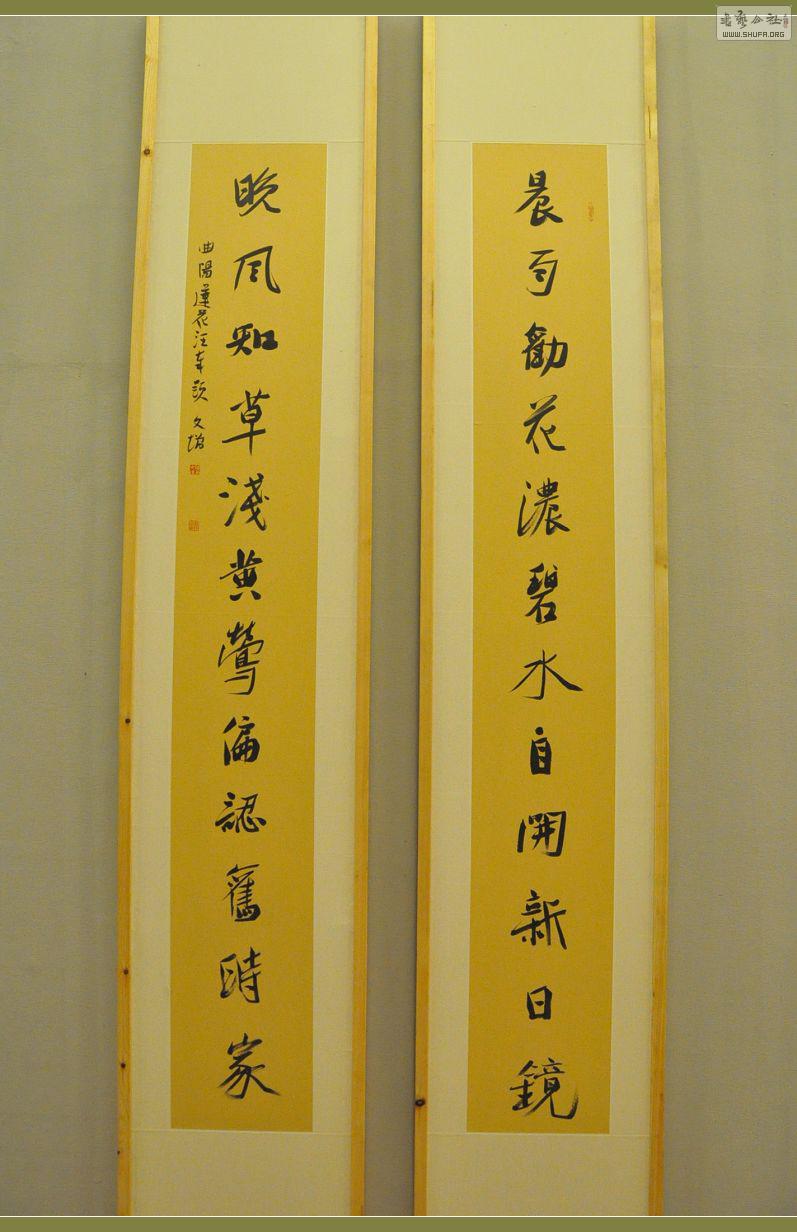 晨雨勸花濃碧水自開新日鏡
晚風知草淺黄鶯偏認舊時家
曲陽蓮花汪車路 文増
書藝公社
WWW.SHUFA.ORG